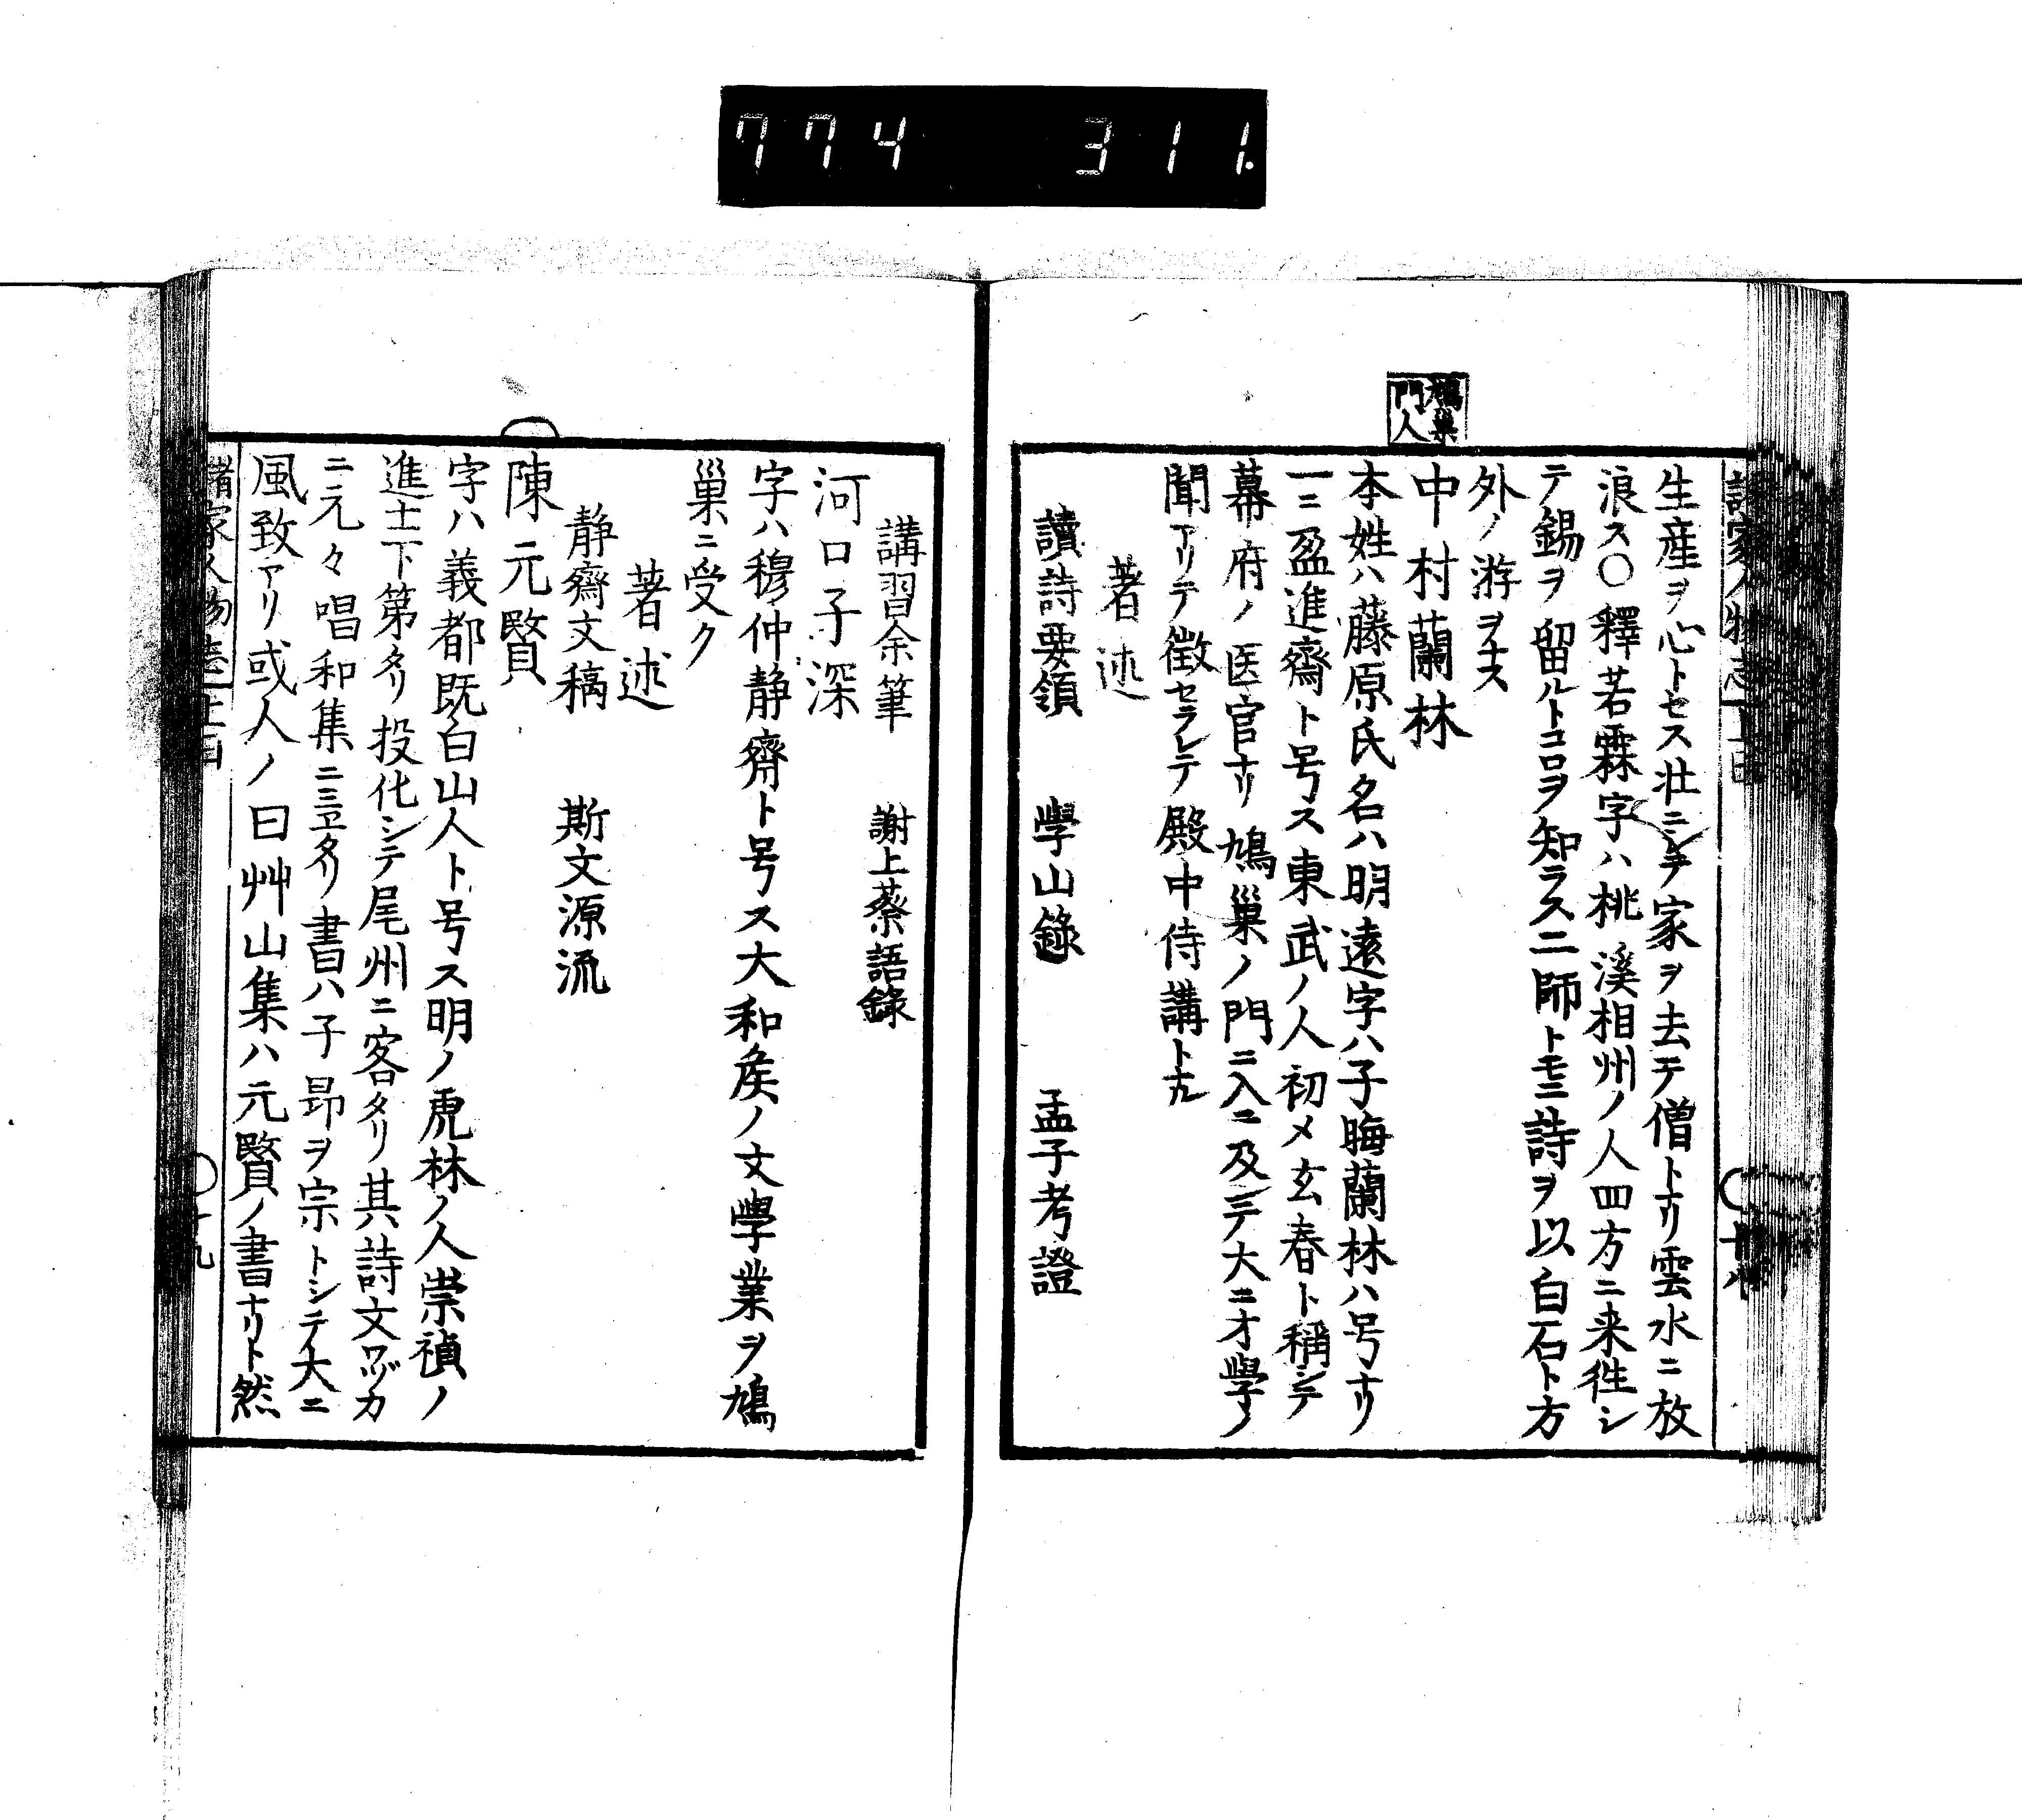 774 311.
鳩巢
門人
生産ヲ心トセス壮ニシテ家ヲ去テ僧トナリ雲水ニ放
浪ス〇釋若霖字ハ桃溪相州ノ人四方ニ来徃シ
テ錫ヲ留ルトコロヲ知ラス二師トモニ詩ヲ以白石ト方
外ノ游ヲナス
中村蘭林
本姓ハ藤原氏名ハ明遠字ハ子晦蘭林ハ号ナリ
一ニ盈進齋ト号ス東武ノ人初メ玄春ト稱シテ
幕府ノ医官ナリ鳩巢ノ門ニ入ニ及ニテ大ニオ學ノ
聞アリテ徴セラレテ殿中侍講トナル
著述
讀詩要領 學山錄 孟子考證
講習余筆 謝上蔡語錄
河口子深
字ハ穆仲静齋ト号ス大和矦ノ文學業ヲ鳩
巢ニ受ク
著述
静齋文稿 斯文源流
陳元贇
字ハ義都既白山人ト号ス明ノ虎林ノ人崇禎ノ
進士下第タリ投化シテ尾州ニ客タリ其詩文ワヅカ
ニ元々唱和集ニ三豆タリ書ハ子昂ヲ宗トシテ大ニ
風致アリ或人ノ曰艸山集ハ元贇ノ書ナリト然
諸家人物志
十九